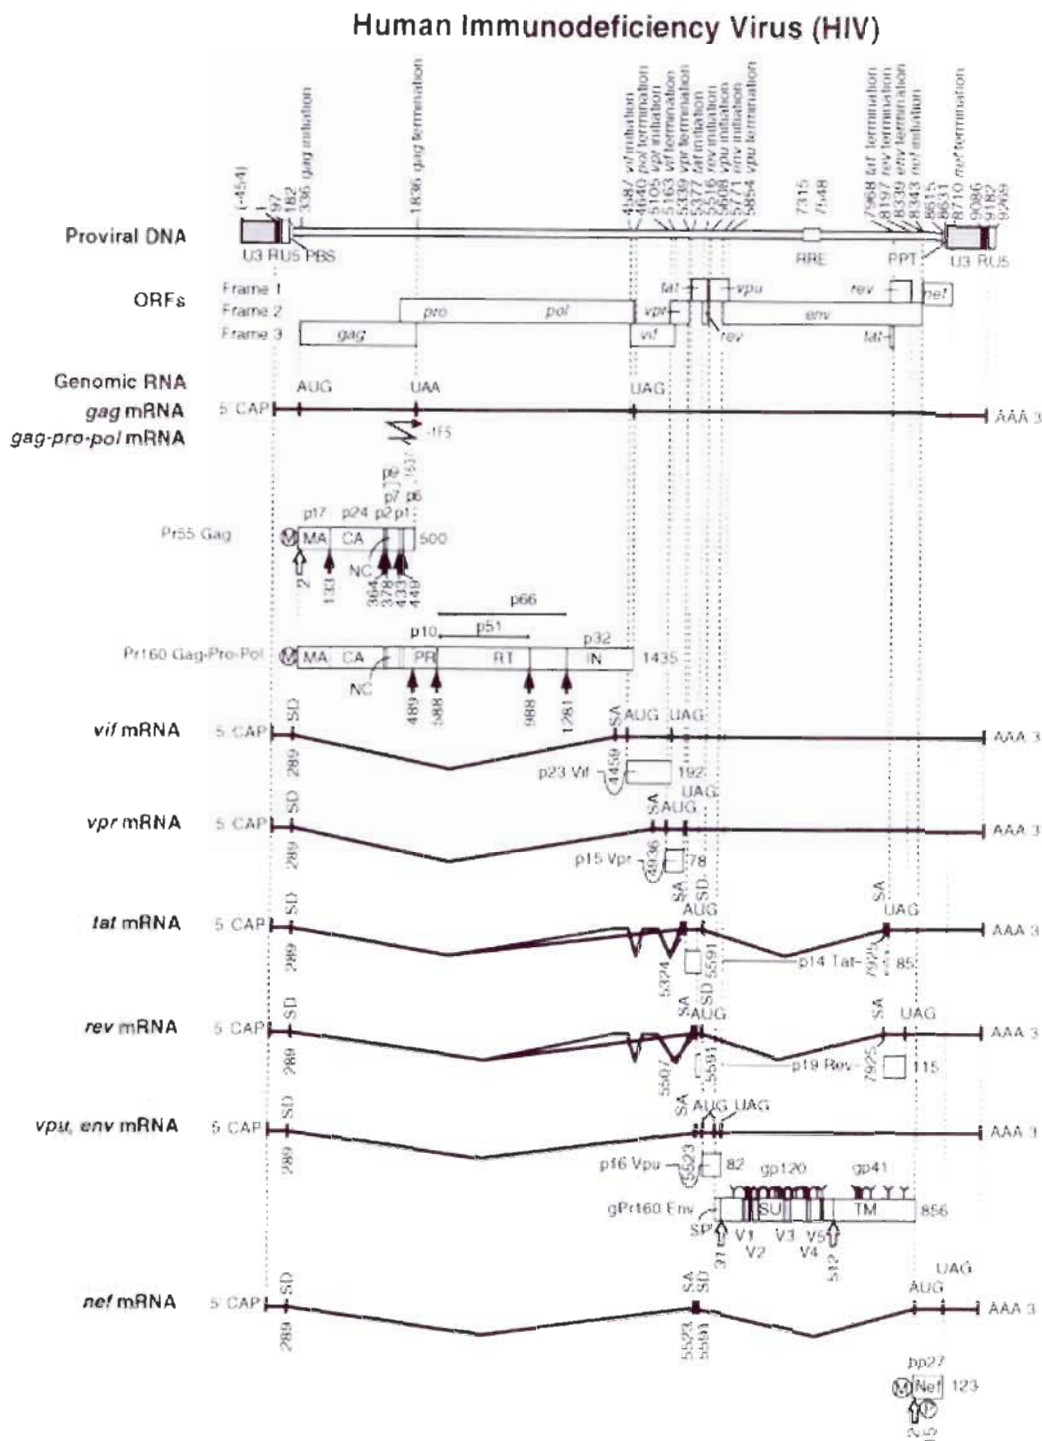 Human Immunodeficiency Virus (HIV)
(-454)
1
97
182
336 gag initiation
1836 gag termination
4587 vif initiation
4640 pol termination
5105 vpr initiation
5163 vif termination
5339 vpr termination
5377 tat initiation
5516 rev initiation
5608 vpu initiation
5771 env initiation
5854 vpu termination
7315
7548
7968 tat termination
8197 rev termination
8339 env termination
8343 nef initiation
8615
8631
8710 nef termination
9086
9182
9269
Proviral DNA
U3 RU5 PBS
RRE
PPT
U3 RU5
ORFs
Frame 1
tat
vpu
rev
nef
Frame 2
pro
pol
vpr
env
Frame 3
gag
vif
rev
tat
Genomic RNA
AUG
UAA
UAG
gag mRNA
5' CAP
AAA 3
gag-pro-pol mRNA
-1FS
p9
p7
p6
p17
p24
p2
p1
Pr55 Gag
M
MA
CA
500
NC
2
133
364
378
433
449
p66
p51
p10
p32
Pr160 Gag-Pro-Pol
M
MA
CA
PR
RT
IN
1435
NC
489
588
988
1281
vif mRNA
5 CAP
SD
289
SA
AUG
UAG
AAA 3
4459
p23 Vif
192
vpr mRNA
5 CAP
SD
289
SA
AUG
UAG
AAA 3
4936
p15 Vpr
78
tat mRNA
5 CAP
SD
289
SA
SD
AUG
SA
UAG
AAA 3
5324
5591
p14 Tat
7925
85
rev mRNA
5 CAP
SD
289
SA
SD
AUG
SA
UAG
AAA 3
5507
5591
p19 Rev
7925
115
vpu, env mRNA
5 CAP
SD
289
SA
AUG
UAG
AAA 3
5523
p16 Vpu
82
gp120
gp41
gPr160 Env
SP
SU
TM
856
31
V1
V2
V3
V4
V5
512
nef mRNA
5' CAP
SD
289
SA
SD
AUG
UAG
AAA 3
5523
5591
pp27
M
Nef
123
2
P
15